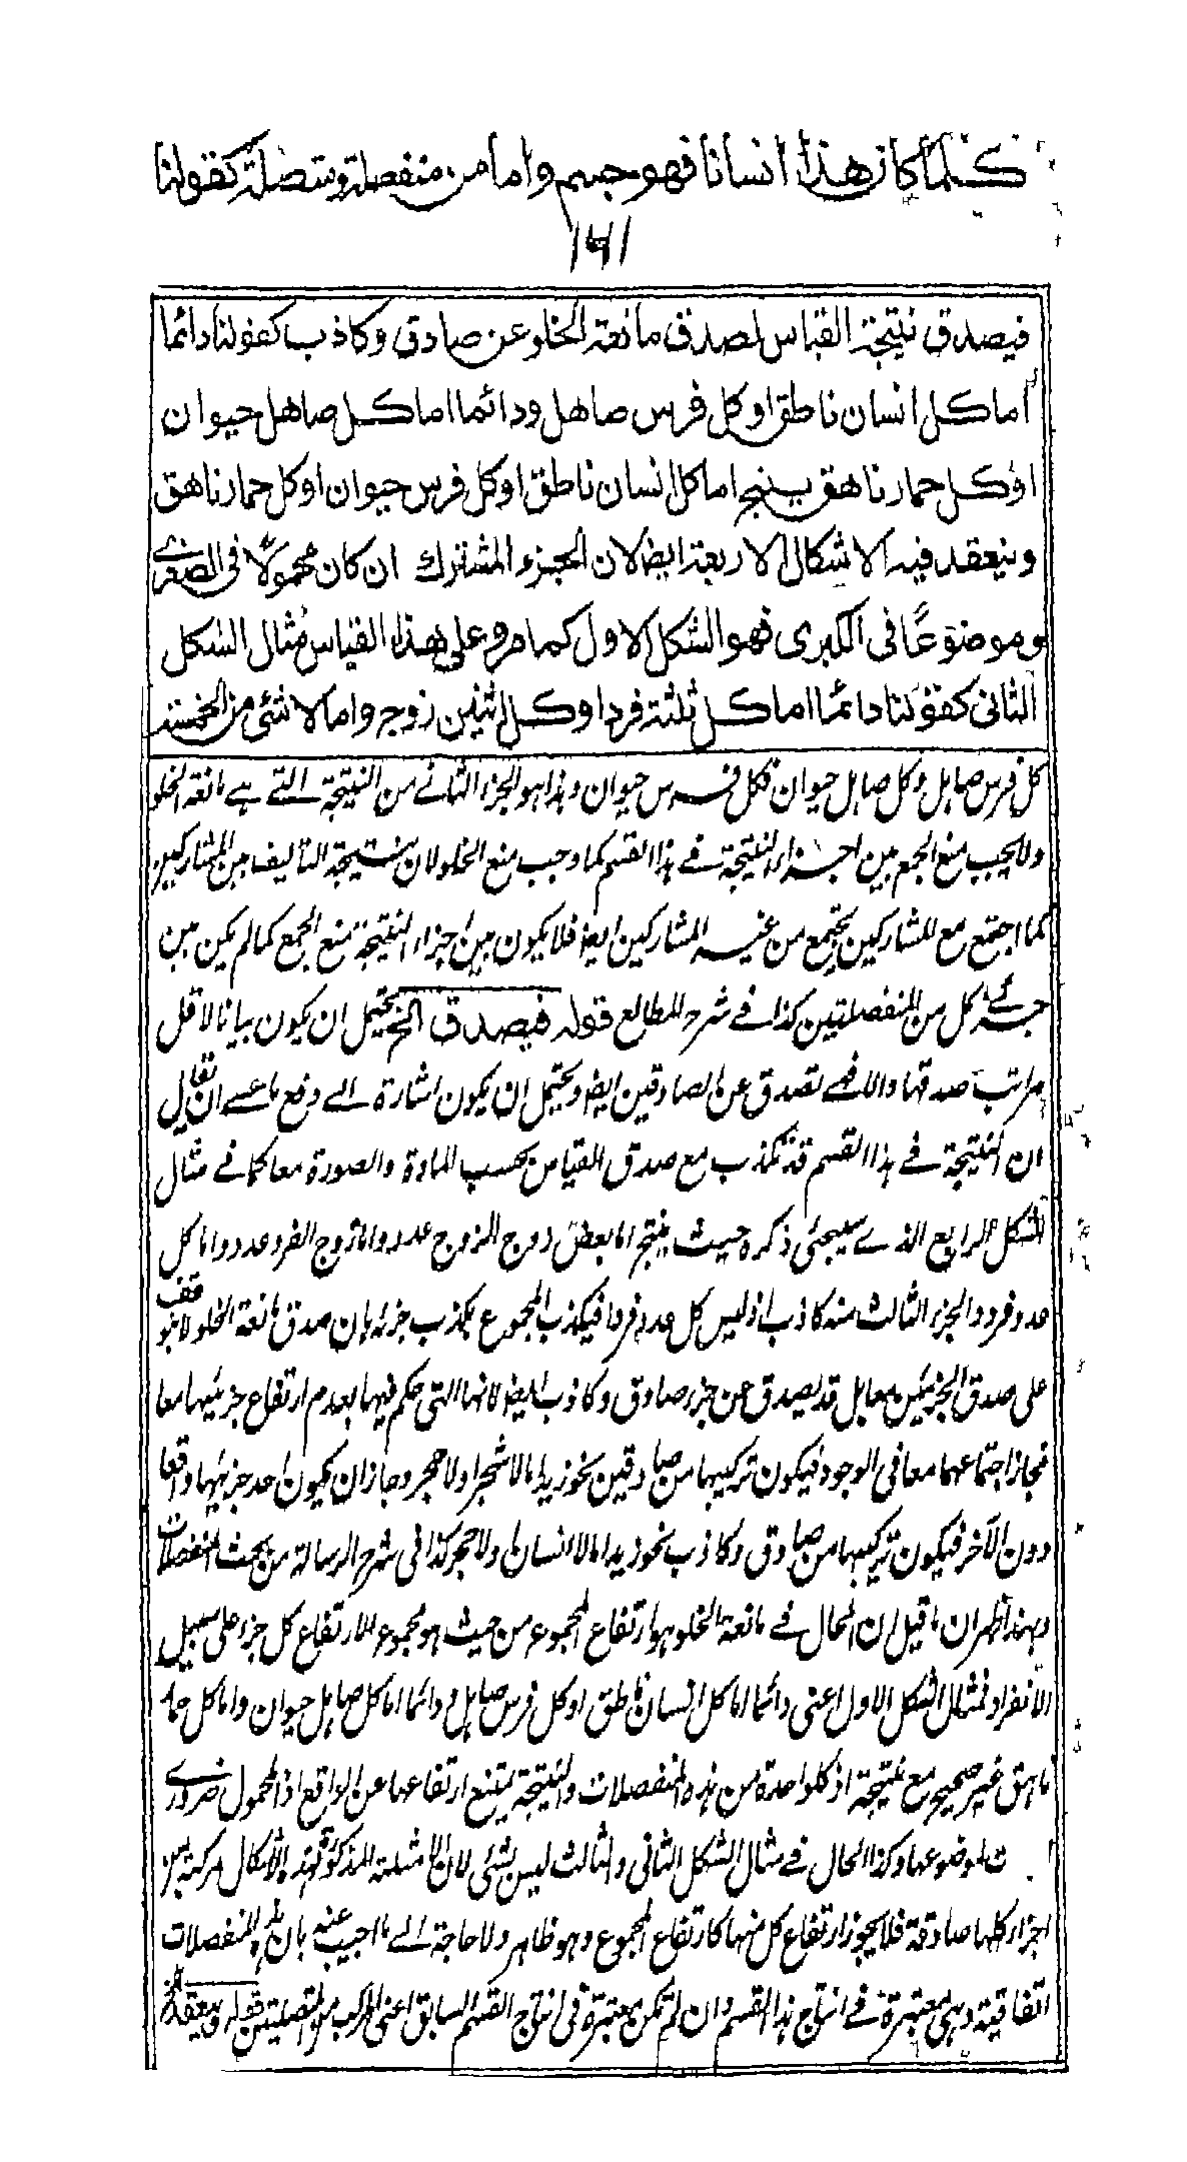 كلما كان هذا انسانا فهو جسم واما من منفصلة ومتصلة كقولنا
١٦١
فيصدق نتيجة القياس لصدق مانعة الخلو عن صادق وكاذب كقولنا دائما
اما كل انسان ناطق او كل فرس صاهل ودائما اما كل صاهل حيوان
او كل حمار ناهق ينتج اما كل انسان ناطق او كل فرس حيوان او كل حمار ناهق
وينعقد فيه الاشكال الاربعة ايضا لان الجزء المشترك ان كان محمولا في الصغرى
وموضوعًا في الكبرى فهو الشكل الاول كما مر وعلى هذا القياس مثال الشكل
الثانى كقولنا دائما اما كل ثلثة فرد او كل اثنين زوج واما لا شئ من الخمسة
كل فرس صاهل وكل صاهل حيوان فكل فرس حيوان وهذا هو الجزء الثاني من النتيجة التي هي مانعة الخلو
ولا يجب منع الجمع بين اجزاء النتيجة في هذا القسم كما وجب منع الخلو لان نتيجة التاليف بين المشاركين
كما اجتمع مع المشاركين يجتمع من غير المشاركين ايضا فلا يكون بين اجزاء النتيجة منع الجمع كما لم يكن بين
جزئي كل من المنفصلتين كذا في شرح المطالع قوله فيصدق الخ يحتمل ان يكون بيانا لاقل
مراتب صدقها والا فهي تصدق عن الصادقين ايضا ويحتمل ان يكون اشارة الى دفع ما عسى ان يقال
ان النتيجة في هذا القسم قد تكذب مع صدق القياس بحسب المادة والصورة معا كما في مثال
الشكل الرابع الذي سيجئ ذكره حيث ينتج اما بعض زوج الزوج عدد واما زوج الفرد عدد واما كل
عدد فرد والجزء الثالث منه كاذب اذ ليس كل عدد فردا فيكذب المجموع بكذب جزئه بان صدق مانعة الخلو لا يتوقف
على صدق الجزئين معا بل قد يصدق عن جزء صادق وكاذب ايضا لانها التي حكم فيها بعدم ارتفاع جزئيها معا
فجاز اجتماعهما معا في الوجود فيكون تركيبها من صادقين نحو زيد اما لا شجر او لا حجر وجاز ان يكون احد جزئيها واقعا
دون الآخر فيكون تركيبها من صادق وكاذب نحو زيد اما لا انسان او لا حجر كذا في شرح الرسالة من بحث المنفصلات
وبهذا ظهر ان ما قيل ان المحال في مانعة الخلو هو ارتفاع المجموع من حيث هو مجموع لا ارتفاع كل جزء على سبيل
الانفراد فمثال الشكل الاول اعني دائما اما كل انسان ناطق او كل فرس صاهل ودائما اما كل صاهل حيوان واما كل حمار
ناهق غير صحيح مع نتيجة اذ كل واحدة من هذه المنفصلات والنتيجة يمتنع ارتفاعها عن الواقع اذ المحمول ضروري
لموضوعها وكذا الحال في مثال الشكل الثاني والثالث ليس بشئ لان الامثلة المذكورة لهذه الاشكال مركبة من
اجزاء كلها صادقة فلا يجوز ارتفاع كل منها كارتفاع المجموع وهو ظاهر ولا حاجة الى ما اجيب عنه بان هذه المنفصلات
اتفاقية وهي معتبرة في انتاج هذا القسم وان لم تكن معتبرة في انتاج القسم السابق اعني المركب من المتصلتين قوله وينعقد الخ